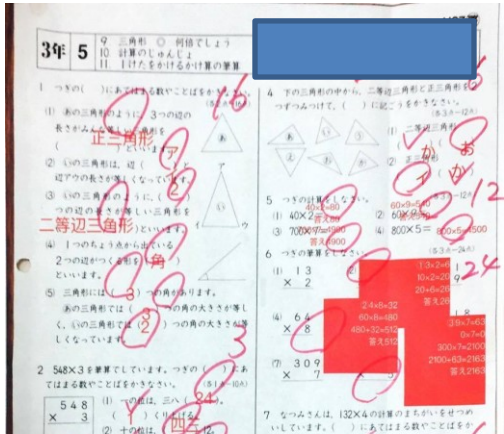 3年 5
9 三角形 ◎ 何倍でしょう
10 計算のじゅんじょ
11 1けたをかけるかけ算の筆算
1 つぎの( )にあてはまる数やことばをかきなさい。
(1) あの三角形のように 3つの辺の
長さがみんな等しい三角形を
正三角形
といいます。
(2) いの三角形は、辺( )と
ア
辺アウの長さが等しくなっています。
(3) いの三角形のように、( )
2
つの辺の長さが等しい三角形を
二等辺三角形
といいます。
(4) 1つのちょう点から出ている
2つの辺がつくる形を( )
角
といいます。
(5) 三角形には(3)つの角があります。
あの三角形では(3)つの角の大きさが等し
く、いの三角形では(2)つの角の大きさが等
しくなっています。
3
2 548×3を筆算でしています。つぎの( )にあ
てはまる数やことばをかきなさい。
548
× 3
(1) 一の位は、三八(24)。
( )くり上げる。
(2) 十の位は、
四三
12
16
ア
イ
ウ
4 下の三角形の中から、二等辺三角形と正三角形を2
つずつみつけて、( )に記ごうをかきなさい。
(1) 二等辺三角形
か お
(2) 正三角形
か
12
5 つぎの計算をしなさい。
(1) 40×2
40×2=80
答え80
(2) 60×9
60×9=540
(3) 700×7
答え4900
(4) 800×5=
800×5=4500
6 つぎの筆算をしなさい。
24
(1) 13
× 2
(2)
①3×2=6
10×2=20
20+6=26
答え26
(4) 64
× 8
2 4×8=32
60×8=480
480+32=512
答え512
18
③9×7=63
0×7=0
300×7=2100
2100+63=2163
答え2163
(7) 309
× 7
7 なつみさんは、132×4の計算のまちがいをせつめ
いしています。( )にあてはまる数やことばをか